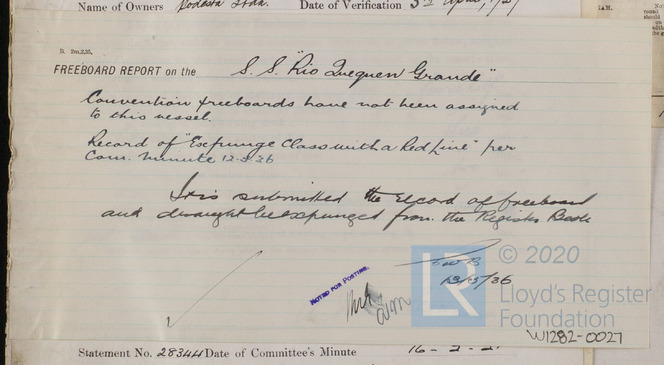 Name of Owners Sodesta Ltda. Date of Verification 3rd April,
B. 2m.2,35.
FREEBOARD REPORT on the S. S. "Rio Quequen Grande"
Convention freeboards have not been assigned
to this vessel.
Record of "Expunge Class with a Red Line" per
Com. minute 12-3-36
It is submitted the record of freeboard
and draught be expunged from the Register Book
13/3/36
NOTED FOR POSTING.
LR
© 2020
Lloyd's Register
Foundation
W1282-0027
Statement No. 28344 Date of Committee's Minute 16-2-2